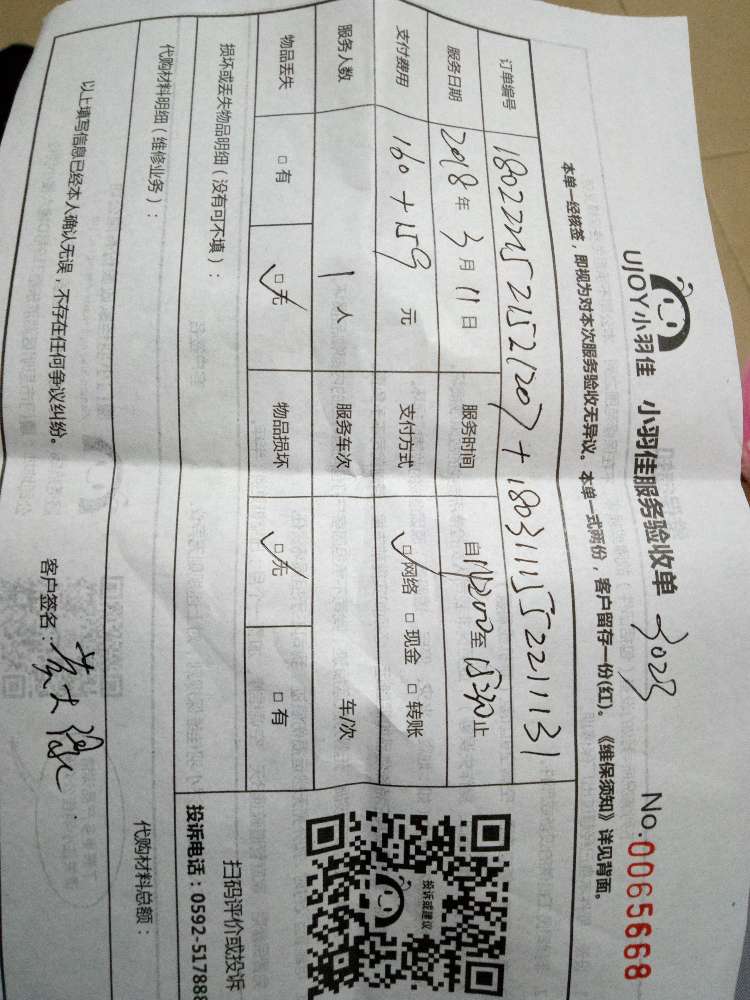 UJOY小羽佳 小羽佳服务验收单 3023 No.0065668
本单一经核签，即视为对本次服务验收无异议。本单一式两份，客户留存一份(红)。《维保须知》详见背面。
订单编号 1802221521521207 + 1803111552211131
服务日期 2018年3月11日 服务时间 自 至15:30止
支付费用 160+159 元 支付方式 ☑网络 □现金 □转账
服务人数 1人 服务车次 车/次
物品丢失 □有 ☑无 物品损坏 ☑无 □有
投诉或建议
损坏或丢失物品明细（没有可不填）：
扫码评价或投诉
投诉电话：0592-517888
代购材料明细（维修业务）：
代购材料总额：
以上填写信息已经本人确认无误，不存在任何争议纠纷。
客户签名：